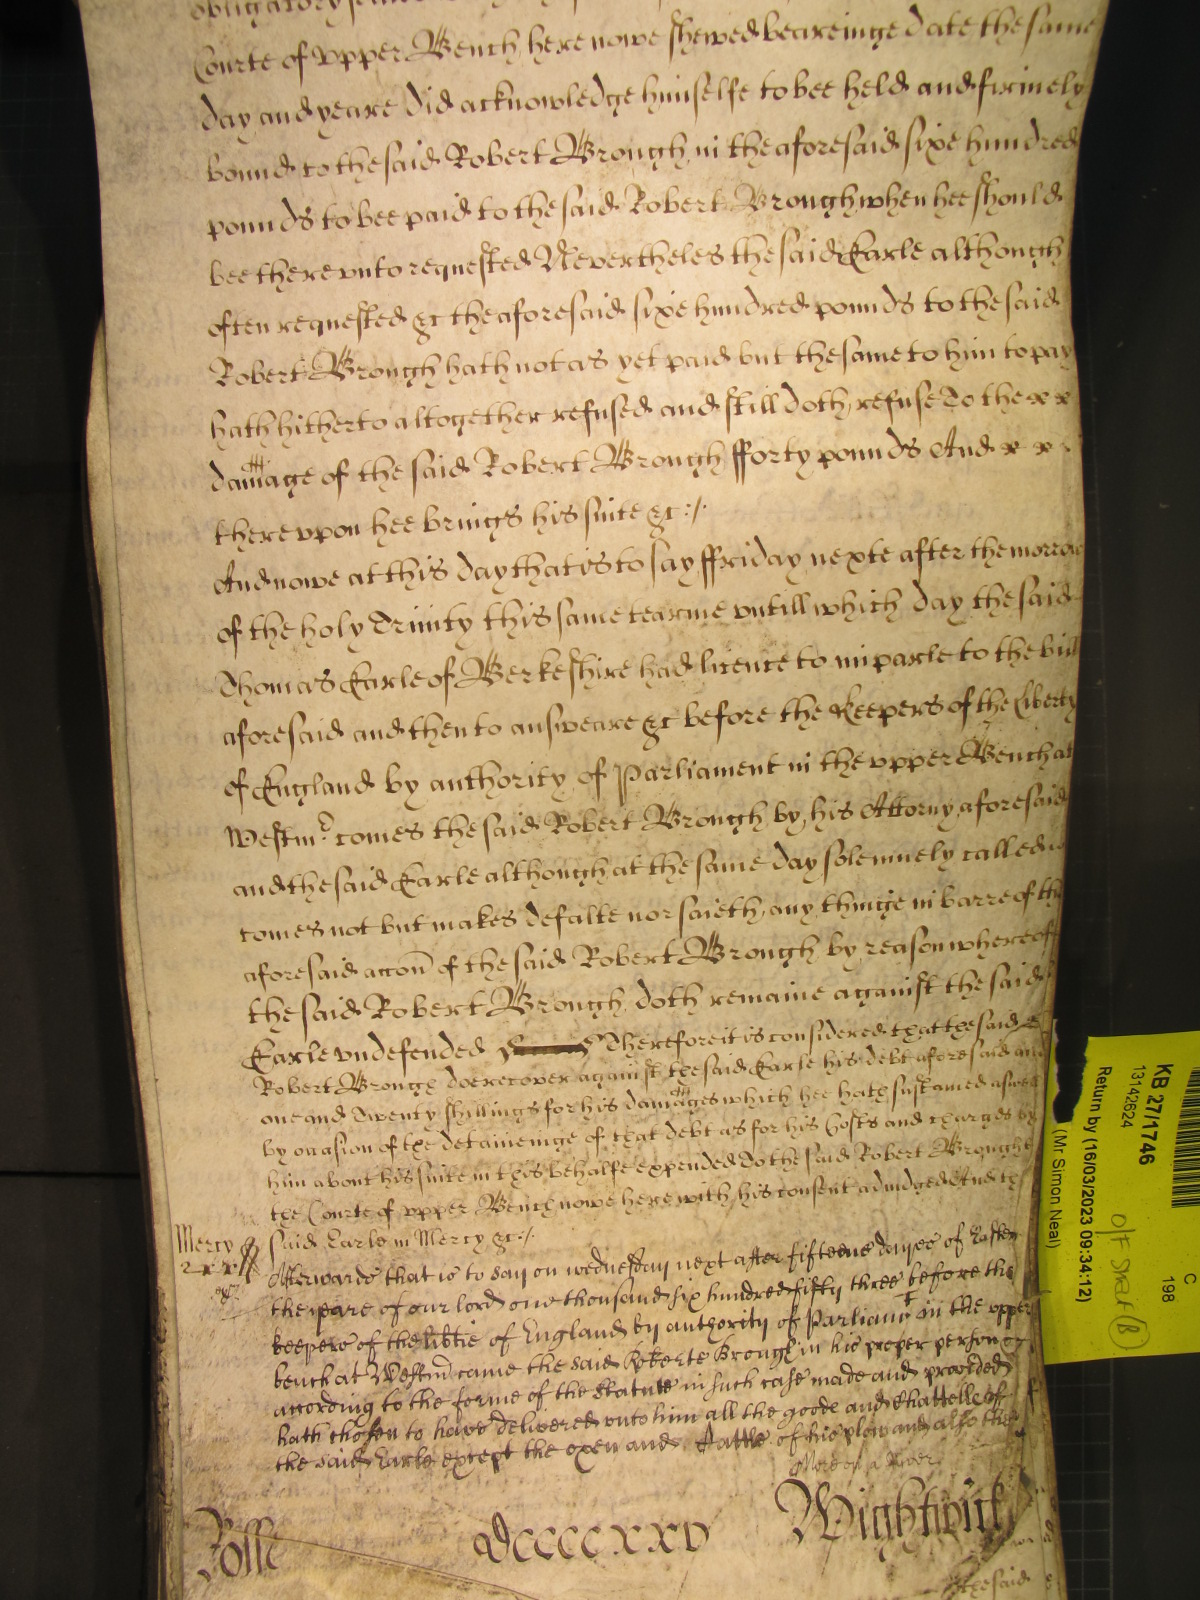 obligatory
Courte of vpper Bench here nowe shewed beareinge date the same
day and yeare did acknowledge himselfe to bee held and firmely
bound to the said Robert Brough in the aforesaid sixe hundred
pounds to bee paid to the said Robert Brough when hee should
bee therevnto requested Nevertheles the said Earle although
often requested &c the aforesaid sixe hundred pounds to the said
Robert Brough hath not as yet paid but the same to him to pay
hath hitherto altogether refused and still doth refuse To the x x
damage of the said Robert Brough fforty pounds And x x
therevpon hee brings his suite &c:/.
And nowe at this day that is to say ffriday nexte after the morrow
of the holy Trinity this same tearme vntill which day the said
Thomas Earle of Berkeshire had licence to imparle to the bill
aforesaid and then to answeare &c before the Keepers of the Liberty
of England by authority of Parliament in the vpper Bench at
Westmr comes the said Robert Brough by his Attorny aforesaid
and the said Earle although at the same day solemnely called
comes not but makes defalte nor saieth any thinge in barre of the
aforesaid accon of the said Robert Brough by reason whereof
the said Robert Brough doth remaine against the said
Earle vndefended Therefore it is considered that the said
Robert Brough doe recover against the said Earle his debt aforesaid and
one and Twenty shillings for his damages which hee hath sustained aswell
by occasion of the detaineinge of that debt as for his Costs and charges by
him about his suite in this behalfe expended To the said Robert Brough
the Courte of vpper Bench nowe here with his consent adiudged And the
said Earle in Mercy &c:/.
Mercy
Afterwards that is to say on wednesday next after fifteene dayes of Easter
the yeare of our lord one thousand six hundred fifty three before the
keepers of the libtie of England by authority of Parliamt in the upper
bench at Westmr came the said Roberte Brough in his proper person &
according to the forme of the Statute in such case made and provided
hath chosen to have delivered unto him all the goods and Chattells of
the said Earle except the oxen and Cattle of his plow and also the
Rolle
dccccxxv
Wightwick
the said
KB 27/1746
13142624
C
198
Return by (16/03/2023 09:34:12)
(Mr Simon Neal)